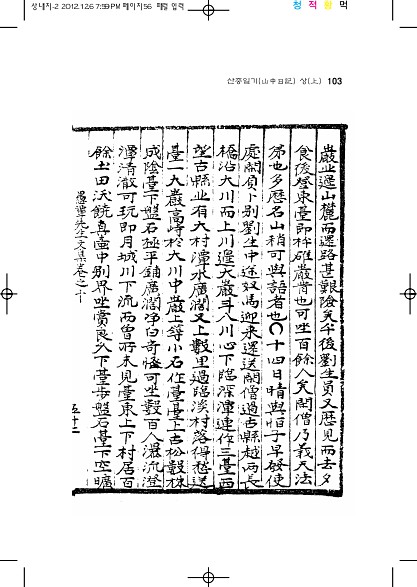 상내지-2 2012.12.6 7:59 PM 페이지56 매킬 입력
청 적 황 먹
산중일기(山中日記) 상(上) 103
巖也遷山麓而還路甚艱險矣午後劉生員又歷見而去夕
食後登東臺即杵碓巖背也可坐百餘人矣開僧乃義天法
弟也多歷名山稍可與語者也〇十四日晴與怕子早發使
處閑負卜別劉生中途奴馬迎來還送閑僧過古縣越兩長
橋沿大川而上川邊大巖斗入川心下臨深潭連作三臺西
望古縣止有大村潭水廣闊又上數里過臨淡村落得愁送
臺一大巖高峙於大川中巖上鏄小石作臺臺上古松數株
成陰臺下盤石極平鋪廣闊淨白奇恠可坐數百人瀑流澄
潭清澈可玩即月城川下流而曾所未見臺東上下村居百
餘土田沃饒真壺中別界坐賞良久下臺步盤石臺下空曠
愚潭先生文集卷之十
五十二